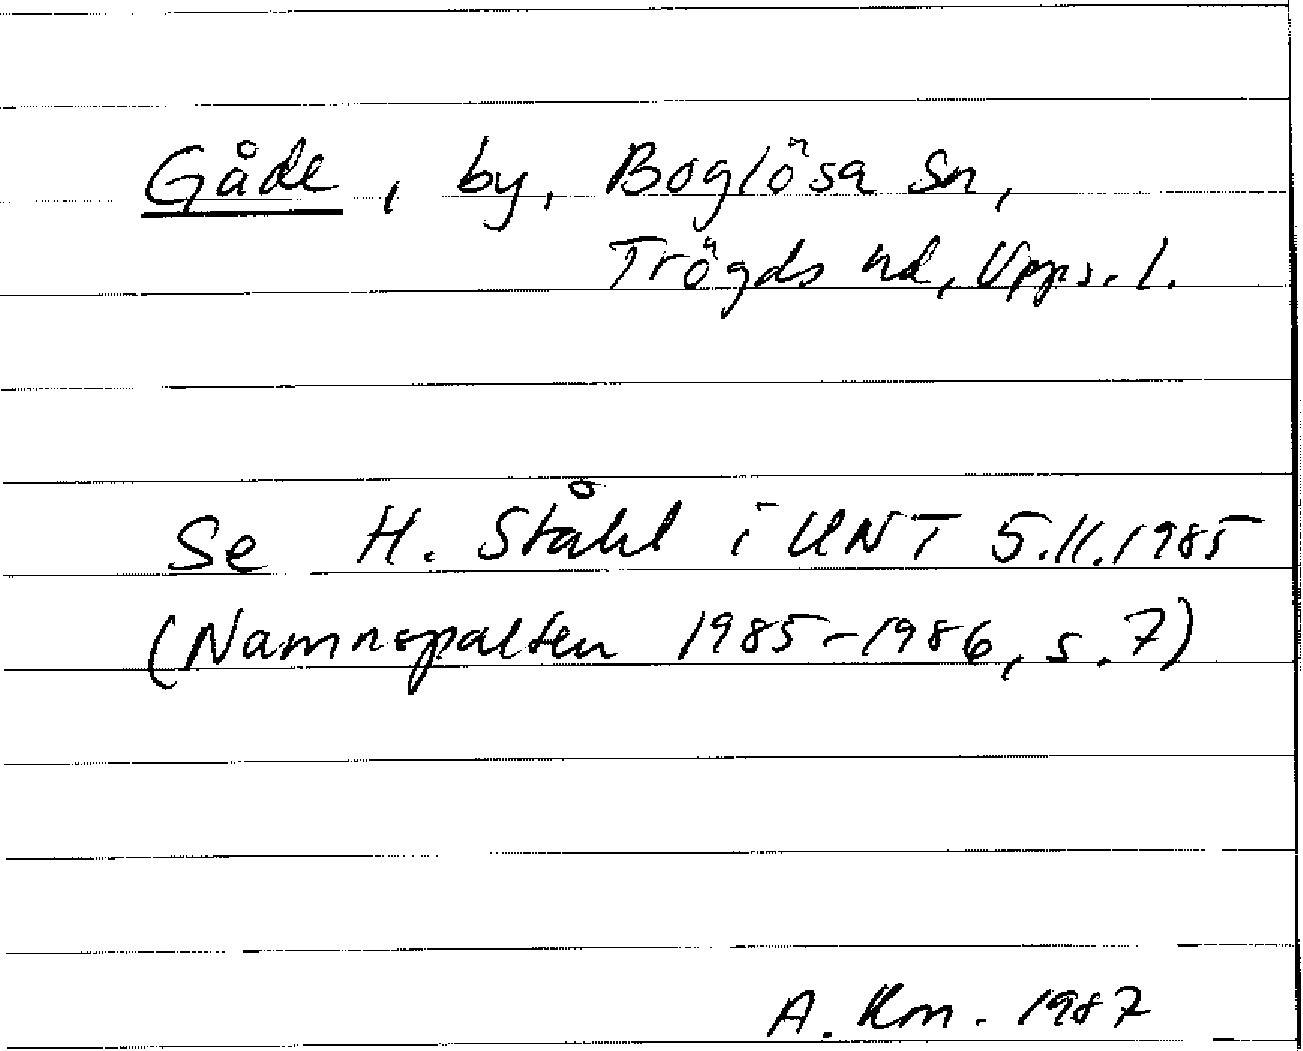 Gåde, by, Boglösa sn,
Trögds hd, Upps. l.
Se H. Ståhl i UNT 5.11.1985
(Namnspalten 1985-1986, s. 7)
A. Km. 1987